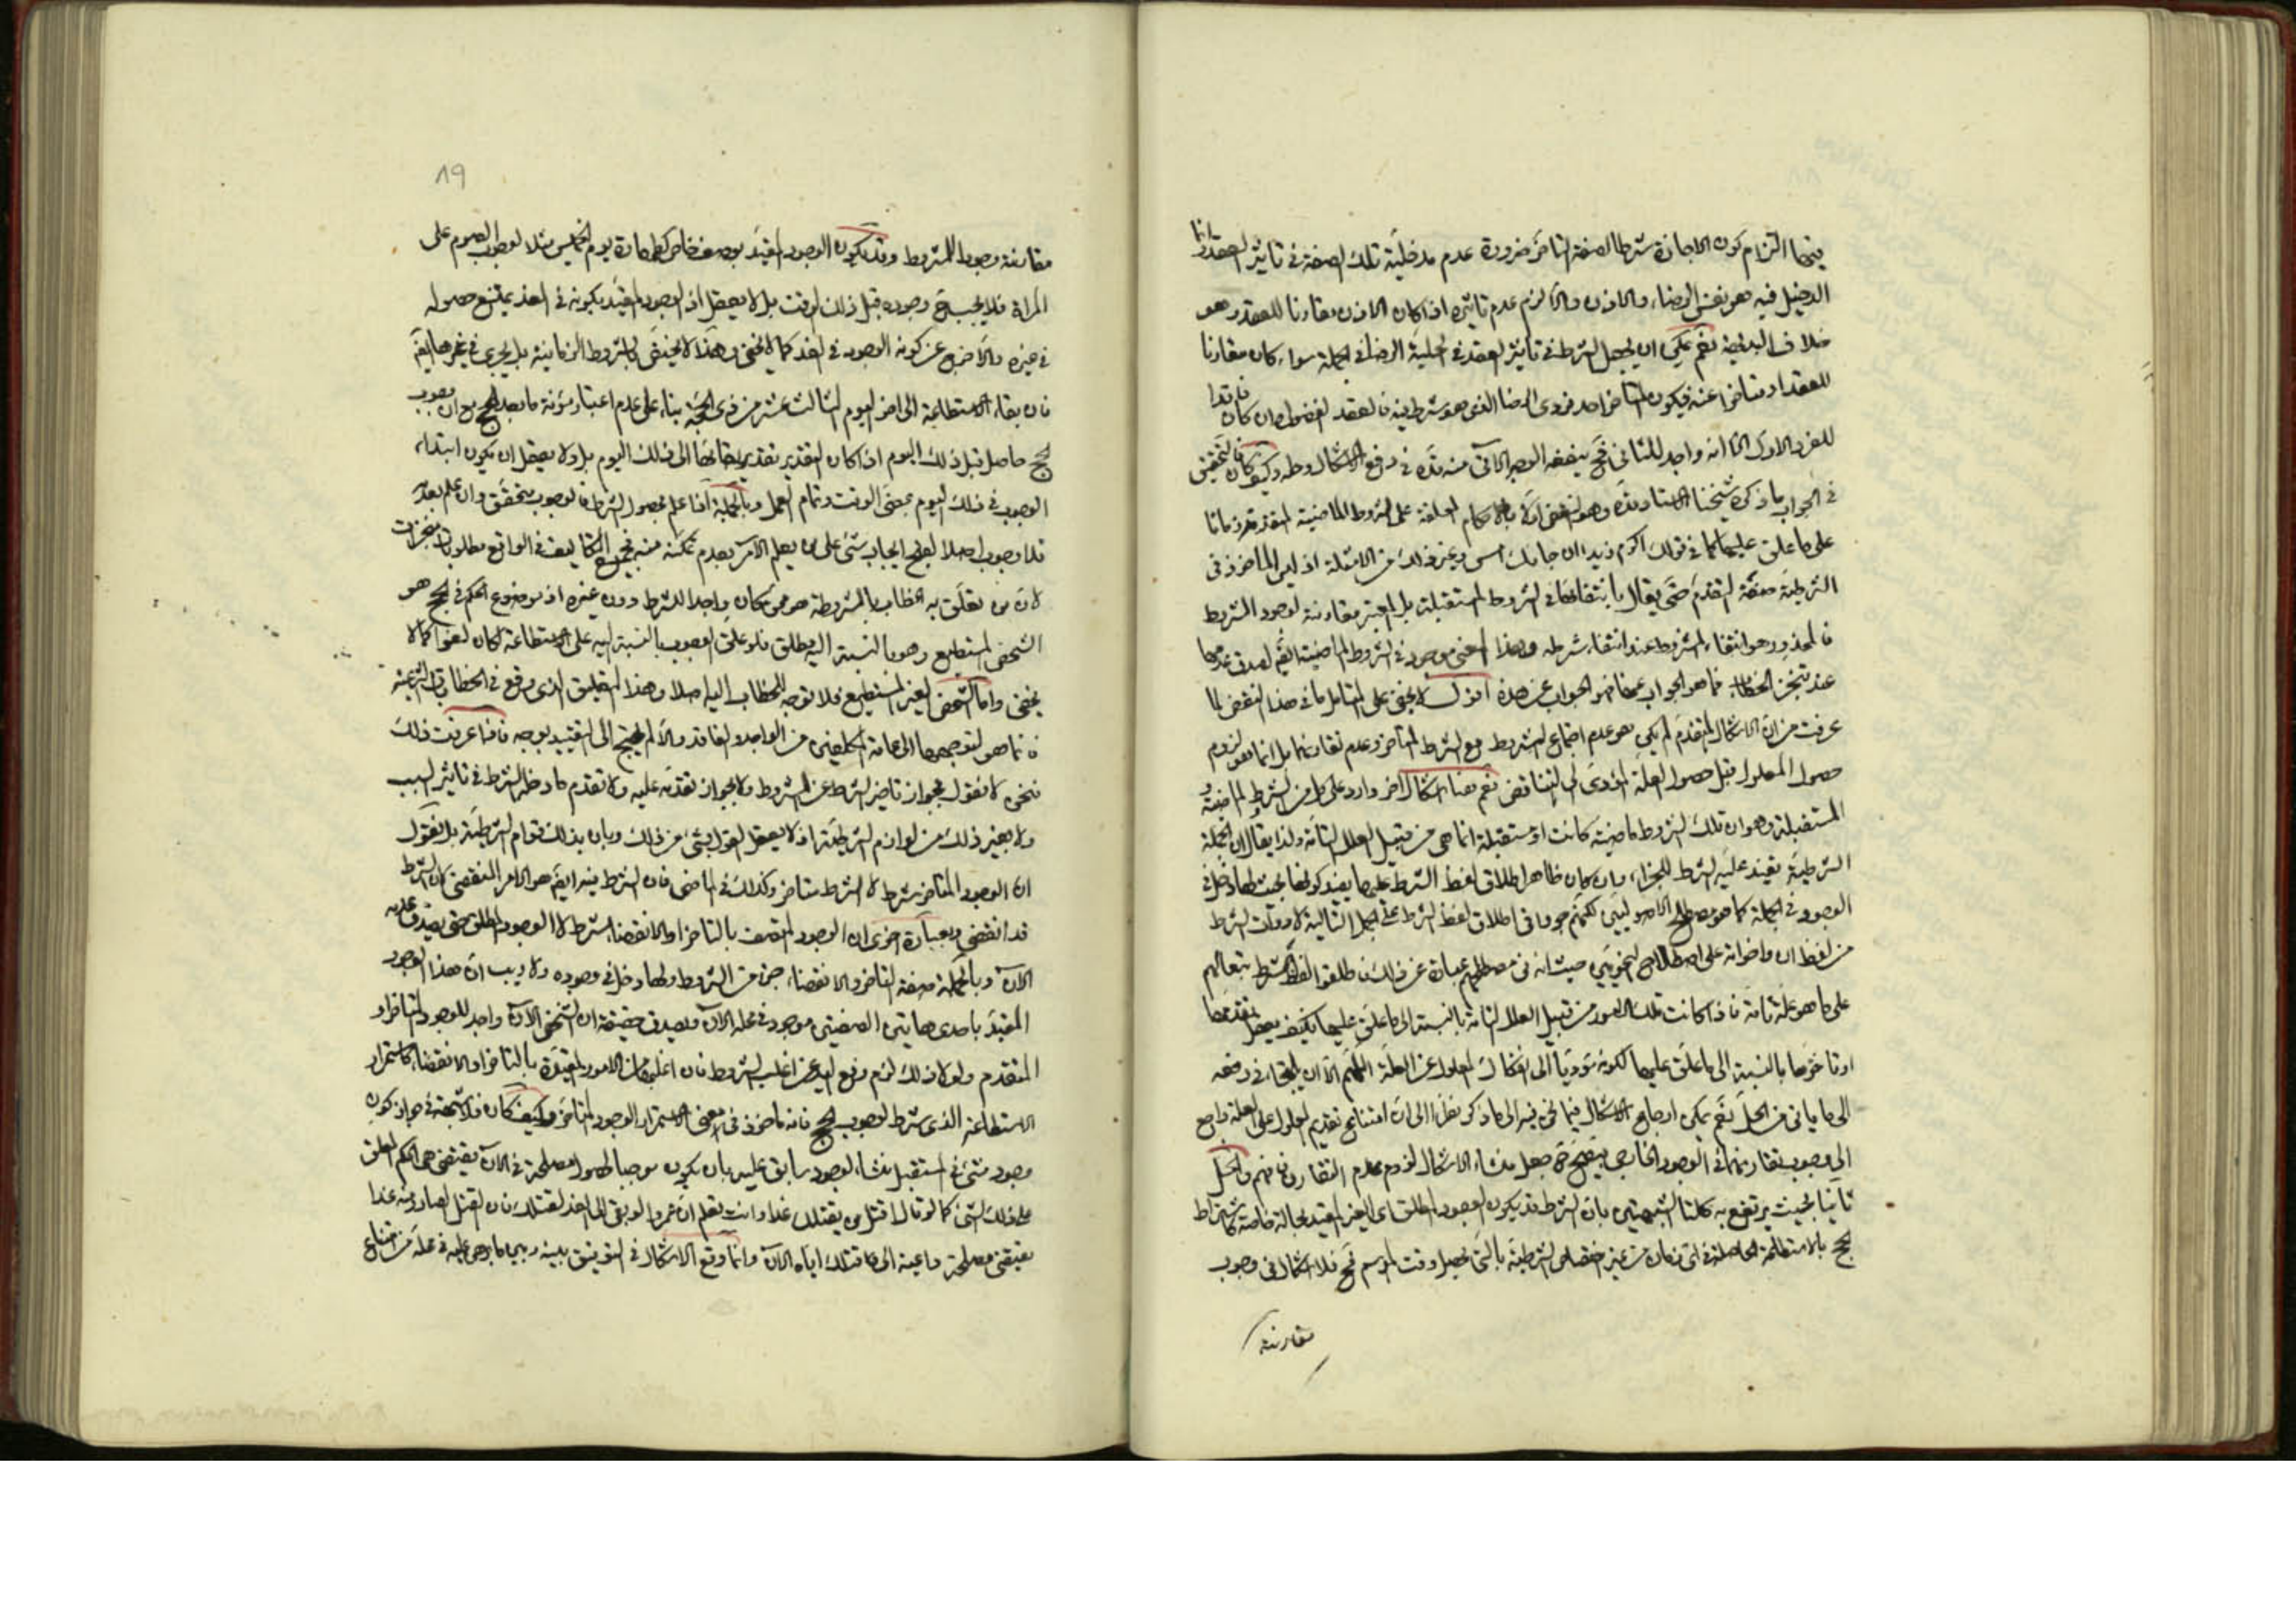 فيها التزام كون الاجازة شرطا لصفة التاخر ضرورة عدم مدخلية تلك الصفة في تاثير العقد وانما
الدخيل فيه هو نفس الرضاء والاذن والا لزم عدم تاثيره اذا كان الاذن مقارنا للعقد وهو
خلاف البديهة نعم يمكن ان يجعل الشرط في تاثير العقد في الحلية الرضا في الجملة سواء كان مقارنا
للعقد او متاخرا عنه فيكون المتاخر احد فردي الرضا الذي هو شرط فيه فالعقد الفضولي وان كان فاقدا
للفرد الاول الا انه واجد للثاني فح ينفعه الوجه الآتي منه قده في دفع الاشكال وحله وكيف كان فالتحقيق
في الجواب ما ذكره شيخنا الاستاد قده وهو النقض اولا بالاحكام المعلقة على الشروط الماضية المتقدمة زمانا
على ما علق عليها كما في قولك اكرم زيدا ان جاءك امس وغير ذلك من الامثلة اذ ليس الماخوذ في
الشرطية صفة التقدم حتى يقال بانتفائها في الشروط المستقبلة بل المعتبر مقارنة لوجود المشروط
فالمحذور هو انتفاء المشروط عند انتفاء شرطه وهذا المعنى موجود في الشروط الماضية ايضا لصدق عدمها
عند تنجز الخطاب فما هو الجواب عنها فهو الجواب عن هذه اقول لا يخفى على المتامل ما في هذا النقض لما
عرفت من ان الاشكال المتقدم لم يكن هو عدم اجتماع المشروط مع الشرط المتاخر وعدم تقارنهما بل انما هو لزوم
حصول المعلول قبل حصول العلة المؤدي الى التناقض نعم هنا اشكال اخر وارد على كل من الشروط الماضية و
المستقبلة وهو ان تلك الشروط ماضية كانت او مستقبلة انما هي من قبيل العلل التامة ولذا يقال ان الجملة
الشرطية تفيد علية الشرط للجزاء وان كان ظاهر اطلاق لفظ الشرط عليها يفيد كونها بحيث لها دخل في
الوجود في الجملة كما هو مصطلح الاصوليين لكنهم جروا في اطلاق لفظ الشرط على الجمل التالية لادوات الشرط
من لفظ ان واخواته على اصطلاح النحويين حيث انه في مصطلحهم عبارة عن ذلك فاطلقوا لفظ الشرط تبعا لهم
على ما هو علة تامة فاذا كانت تلك الامور من قبيل العلل التامة بالنسبة الى ما علق عليها فكيف يعقل تقدمها
او تاخرها بالنسبة الى ما علق عليها لكونه مؤديا الى انفكاك المعلول عن العلة اللهم الا ان يلتجا في دفعه
الى ما ياتي من الحل نعم يمكن ارجاع الاشكال فيما نحن فيه الى ما ذكر نظرا الى ان امتناع تقديم المعلول على العلة راجع
الى وجوب تقارنهما في الوجود الخارجي فيتضح ح جعل منشاء الاشكال لزوم عدم التقارن فافهم والحل
ثانيا بحيث يرتفع به كلتا الشبهتين بان الشرط قد يكون الوجود المطلق اي الغير المقيد بحالة خاصة كاشتراط
الحج بالاستطاعة الحاصلة في اي زمان من غير اختصاص الشرطية بالتي تحصل وقت الموسم فح فلا اشكال في وجوب
مقارنة
٨٩
مقارنة وجوده للمشروط وقد يكون الوجود المقيد بوصف خاص كطهارة يوم الخميس مثلا لوجوب الصوم على
المراة فلا يجب ح وجوده قبل ذلك الوقت بل لا يعقل اذ الوجود المقيد بكونه في الغد يمتنع حصوله
في غيره والا خرج عن كونه الوجود في الغد كما لا يخفى وهذا لا يختص بالشروط الزمانية بل يجري في غيرها ايضا
فان بقاء الاستطاعة الى اخر اليوم الثالث عشر من ذي الحجة بناء على عدم اعتبار مؤنة ما بعد الحج مع ان وجوب
الحج حاصل قبل ذلك اليوم اذا كان التقدير تقدير بقائها الى ذلك اليوم بل ولا يعقل ان يكون ابتداء
الوجوب في ذلك اليوم بمضي الوقت وتمام العمل وبالجملة اذا علم بحصول الشرط فالوجوب متحقق وان علم بعدمه
فلا وجوب اصلا لقبح ايجاب شيء على من يعلم الآمر بعدم تمكنه منه فجميع التكاليف في الواقع مطلوبات منجزات
لان من تعلق به الخطاب بالمشروطة هو من كان واجدا للشرط دون غيره اذ موضوع الحكم في الحج هو
الشخص المستطيع وهو بالنسبة اليه مطلق فلو علق الوجوب بالنسبة اليه على الاستطاعة لكان لغوا كما لا
يخفى واما الشخص الغير المستطيع فلا توجه للخطاب اليه اصلا وهذا التعليق الذي وقع في الخطابات الشرعية
فانما هو لتوجيهها الى عامة المكلفين من الواجد والفاقد والا لم يحتج الى التقييد بوجه فاذا عرفت ذلك
فنحن لا نقول بجواز تاخير الشرط عن المشروط ولا بجواز تقدمه عليه ولا تقدم ما دخله الشرط في تاثير السبب
ولا بغير ذلك من لوازم الشرطية اذ لا يعقل القول بشيء من ذلك وبان بذلك قوام الشرطية بل نقول
ان الوجود المتاخر شرط لا الشرط متاخر وكذلك في الماضي فان الشرط فيه ايضا هو الامر المنقضي لا ان الشرط
قد انقضى وبعبارة اخرى ان الوجود المتصف بالتاخر او الانقضاء شرط لا الوجود المطلق حتى يصدق عدمه
الآن وبالجملة صفة التاخر والانقضاء جزء من الشروط ولها دخل في وجوده ولا ريب ان هذا الوجود
المقيد باحدى هاتين الصفتين موجود في محله الآن ويصدق حقيقة ان الشخص الآن واجد للوجود المتاخر او
المتقدم ولولا ذلك لزم رفع اليد عن اغلب الشروط فان اغلبها من الامور المقيدة بالتاخر او الانقضاء كاستمرار
الاستطاعة الذي شرط لوجوب الحج فانه ماخوذ في معنى الاستمرار الوجود المتاخر وكيف كان فلا شبهة في جواز كون
وجود شيء في المستقبل منشاء لوجود سابق عليه بان يكون موجبا لحصول مصلحة في الآن يقتضي هي الحكم المعلق
على ذلك الشيء كما لو قال اقتل من يقتلك غدا وانت تعلم ان عمروا لو بقي الى الغد لقتلك فان القتل الصادر منه غدا
يقتضي مصلحة داعية الى قتلك اياه الآن وانما وقع الاشكال في التوفيق بينه وبين ما برهن عليه في محله من امتناع